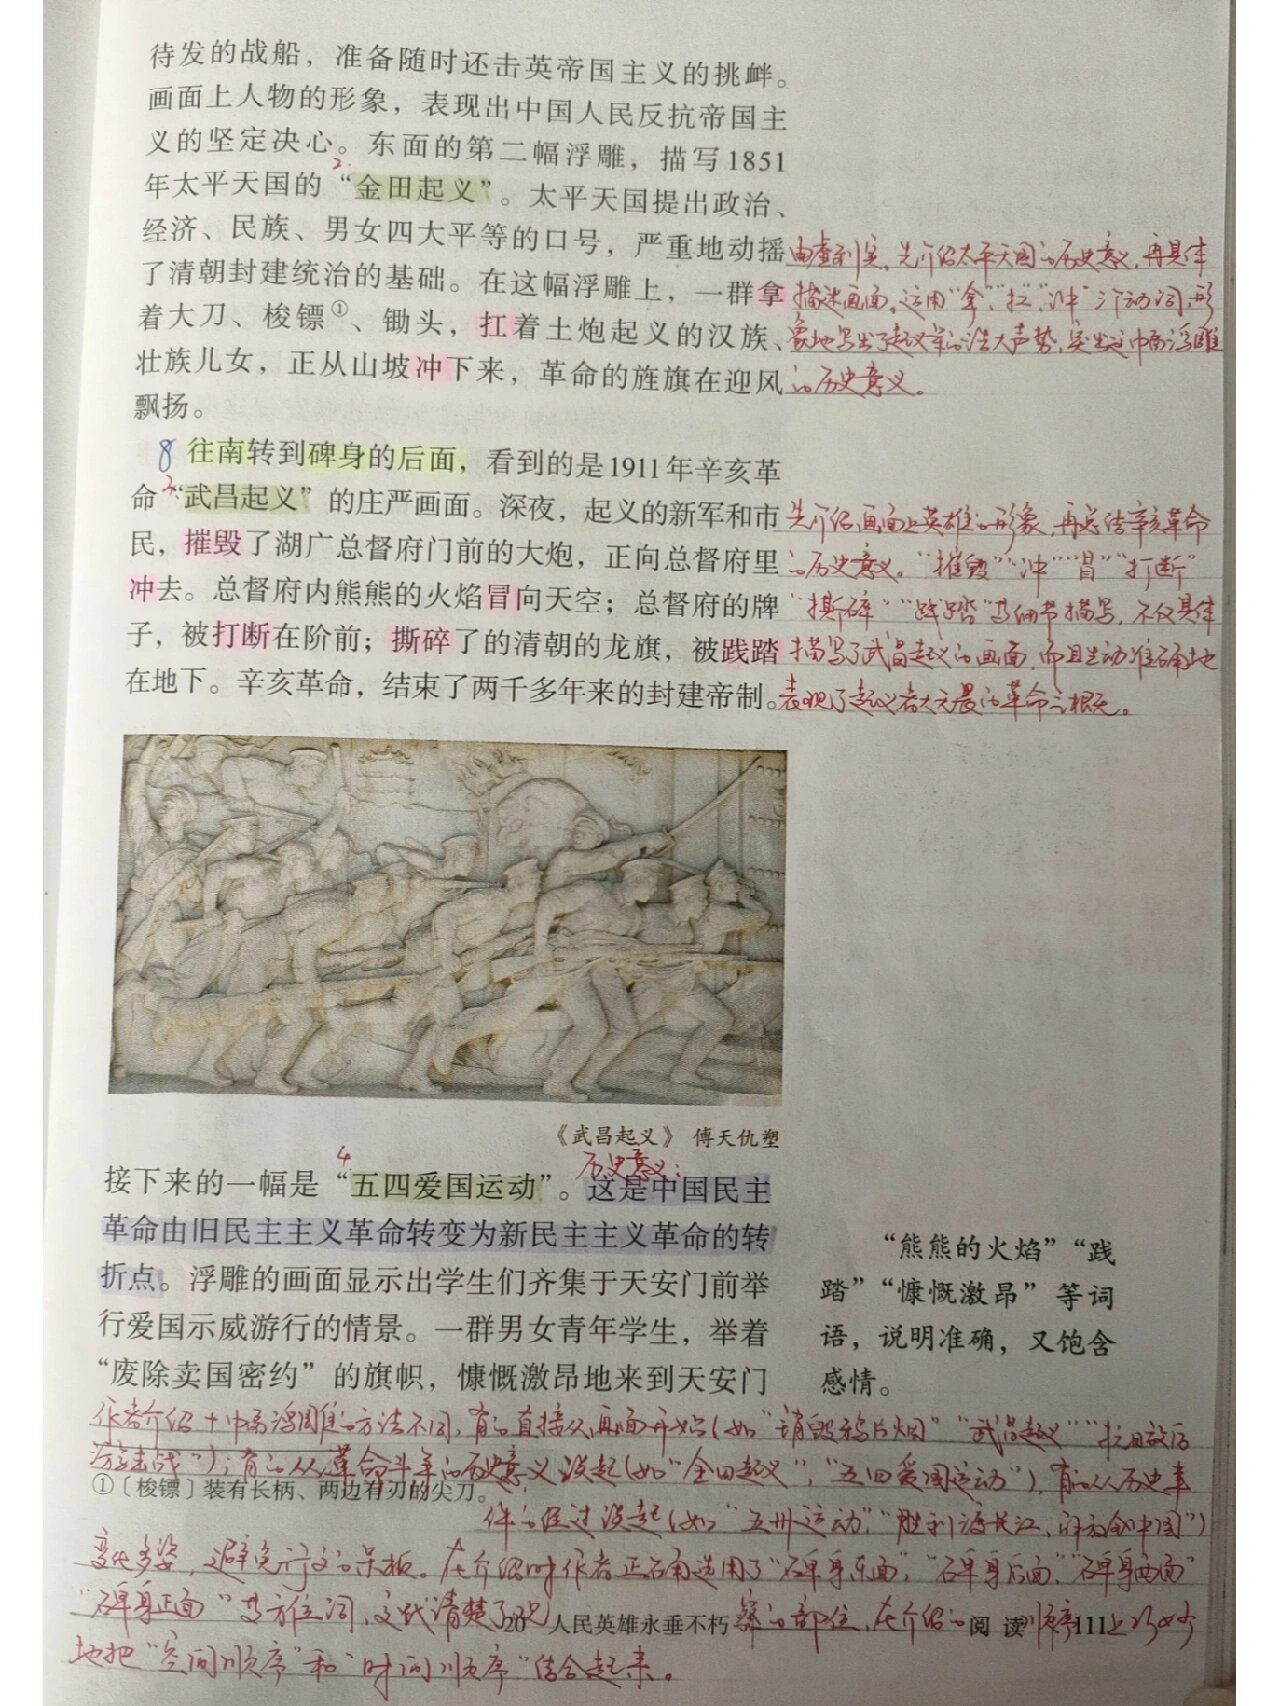 待发的战船，准备随时还击英帝国主义的挑衅。
画面上人物的形象，表现出中国人民反抗帝国主
义的坚定决心。东面的第二幅浮雕，描写1851
2.
年太平天国的“金田起义”。太平天国提出政治、
经济、民族、男女四大平等的口号，严重地动摇
了清朝封建统治的基础。在这幅浮雕上，一群拿
着大刀、梭镖①、锄头，扛着土炮起义的汉族、
壮族儿女，正从山坡冲下来，革命的旌旗在迎风
飘扬。
先介绍太平天国的历史意义，再具体
描述画面，运用“拿”“扛”“冲”三个动词，形
象地写出了起义军的浩大声势，突出这中而浮雕
的历史意义。
8 往南转到碑身的后面，看到的是1911年辛亥革
3.
命“武昌起义”的庄严画面。深夜，起义的新军和市
民，摧毁了湖广总督府门前的大炮，正向总督府里
冲去。总督府内熊熊的火焰冒向天空；总督府的牌
子，被打断在阶前；撕碎了的清朝的龙旗，被践踏
在地下。辛亥革命，结束了两千多年来的封建帝制。
先介绍画面上英雄的形象，再总结辛亥革命
的历史意义。“摧毁”“冲”“冒”“打断”
“撕碎”“践踏”等细节描写，不仅具体
描写了武昌起义的画面，而且生动准确地
表现了起义者大无畏的革命
《武昌起义》 傅天仇塑
4 历史意义：
接下来的一幅是“五四爱国运动”。这是中国民主
革命由旧民主主义革命转变为新民主主义革命的转
折点。浮雕的画面显示出学生们齐集于天安门前举
行爱国示威游行的情景。一群男女青年学生，举着
“废除卖国密约”的旗帜，慷慨激昂地来到天安门
“熊熊的火焰”“践
踏”“慷慨激昂”等词
语，说明准确，又饱含
感情。
作者介绍十中而浮雕的方法不同，有的直接从画面开始（如“销毁鸦片烟”“武昌起义”“抗日敌后
游击战”）；有的从革命斗争的历史意义谈起（如“金田起义”，“五四爱国运动”），有的从历史事
①〔梭镖〕装有长柄、两边有刃的尖刀。
件的经过谈起（如“五卅运动”，“胜利渡长江，解放全中国”）
变化多姿，避免行文的呆板。在介绍时作者正确选用了“碑身东面”，“碑身后面”，“碑身西面”
“碑身正面”等方位词，交代清楚了 的部位，在介绍的顺序上
20 人民英雄永垂不朽 阅 读 111
地把“空间顺序”和“时间顺序”结合起来。